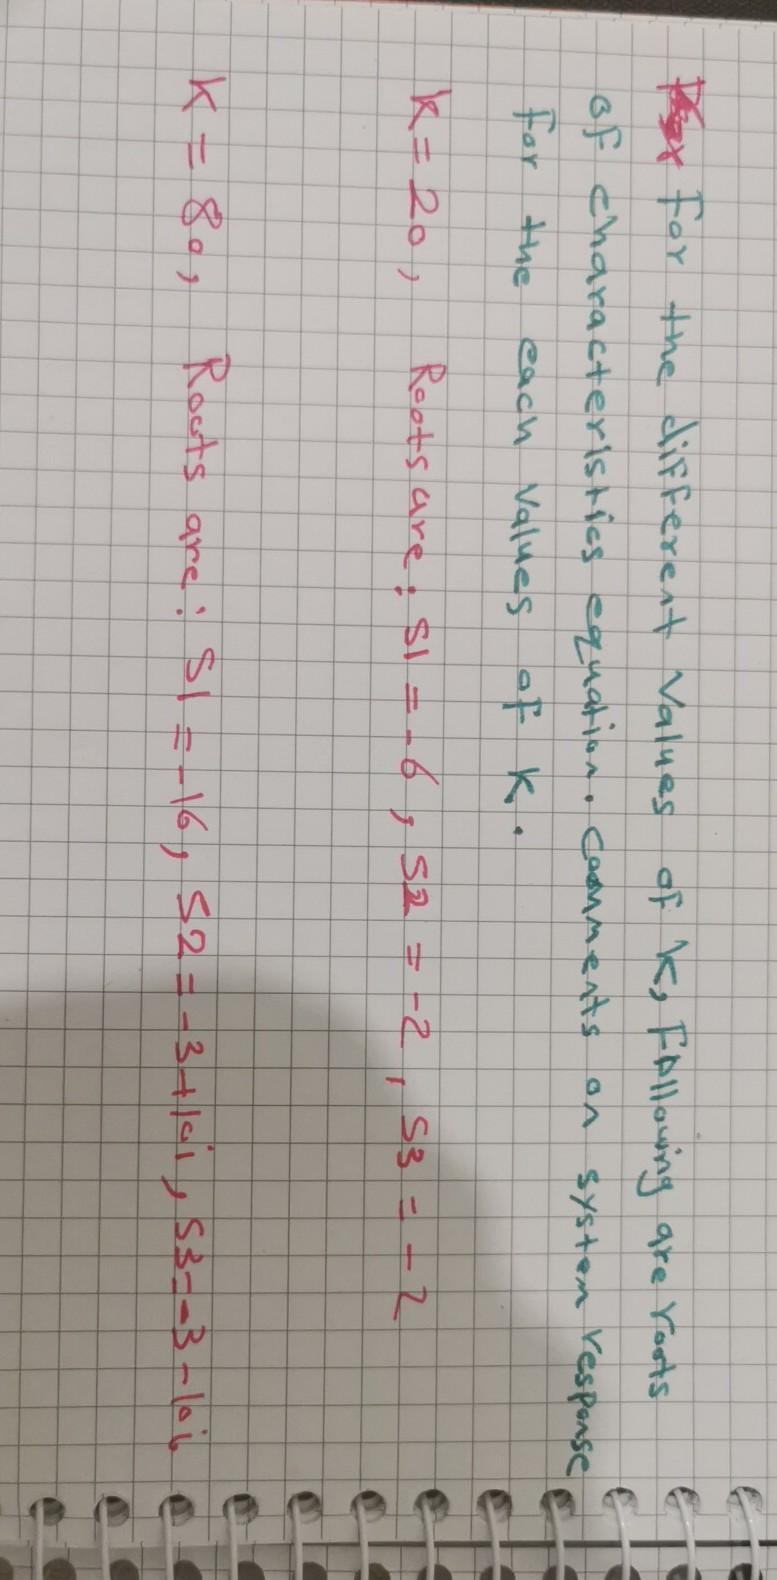 For the different values of K, Following are roots
of characteristics equation. Comments on system response
for the each values of K.
K = 20, Roots are: S1 = -6, S2 = -2, S3 = -2
K = 80, Roots are: S1 = -16, S2 = -3+10i, S3 = -3-10i